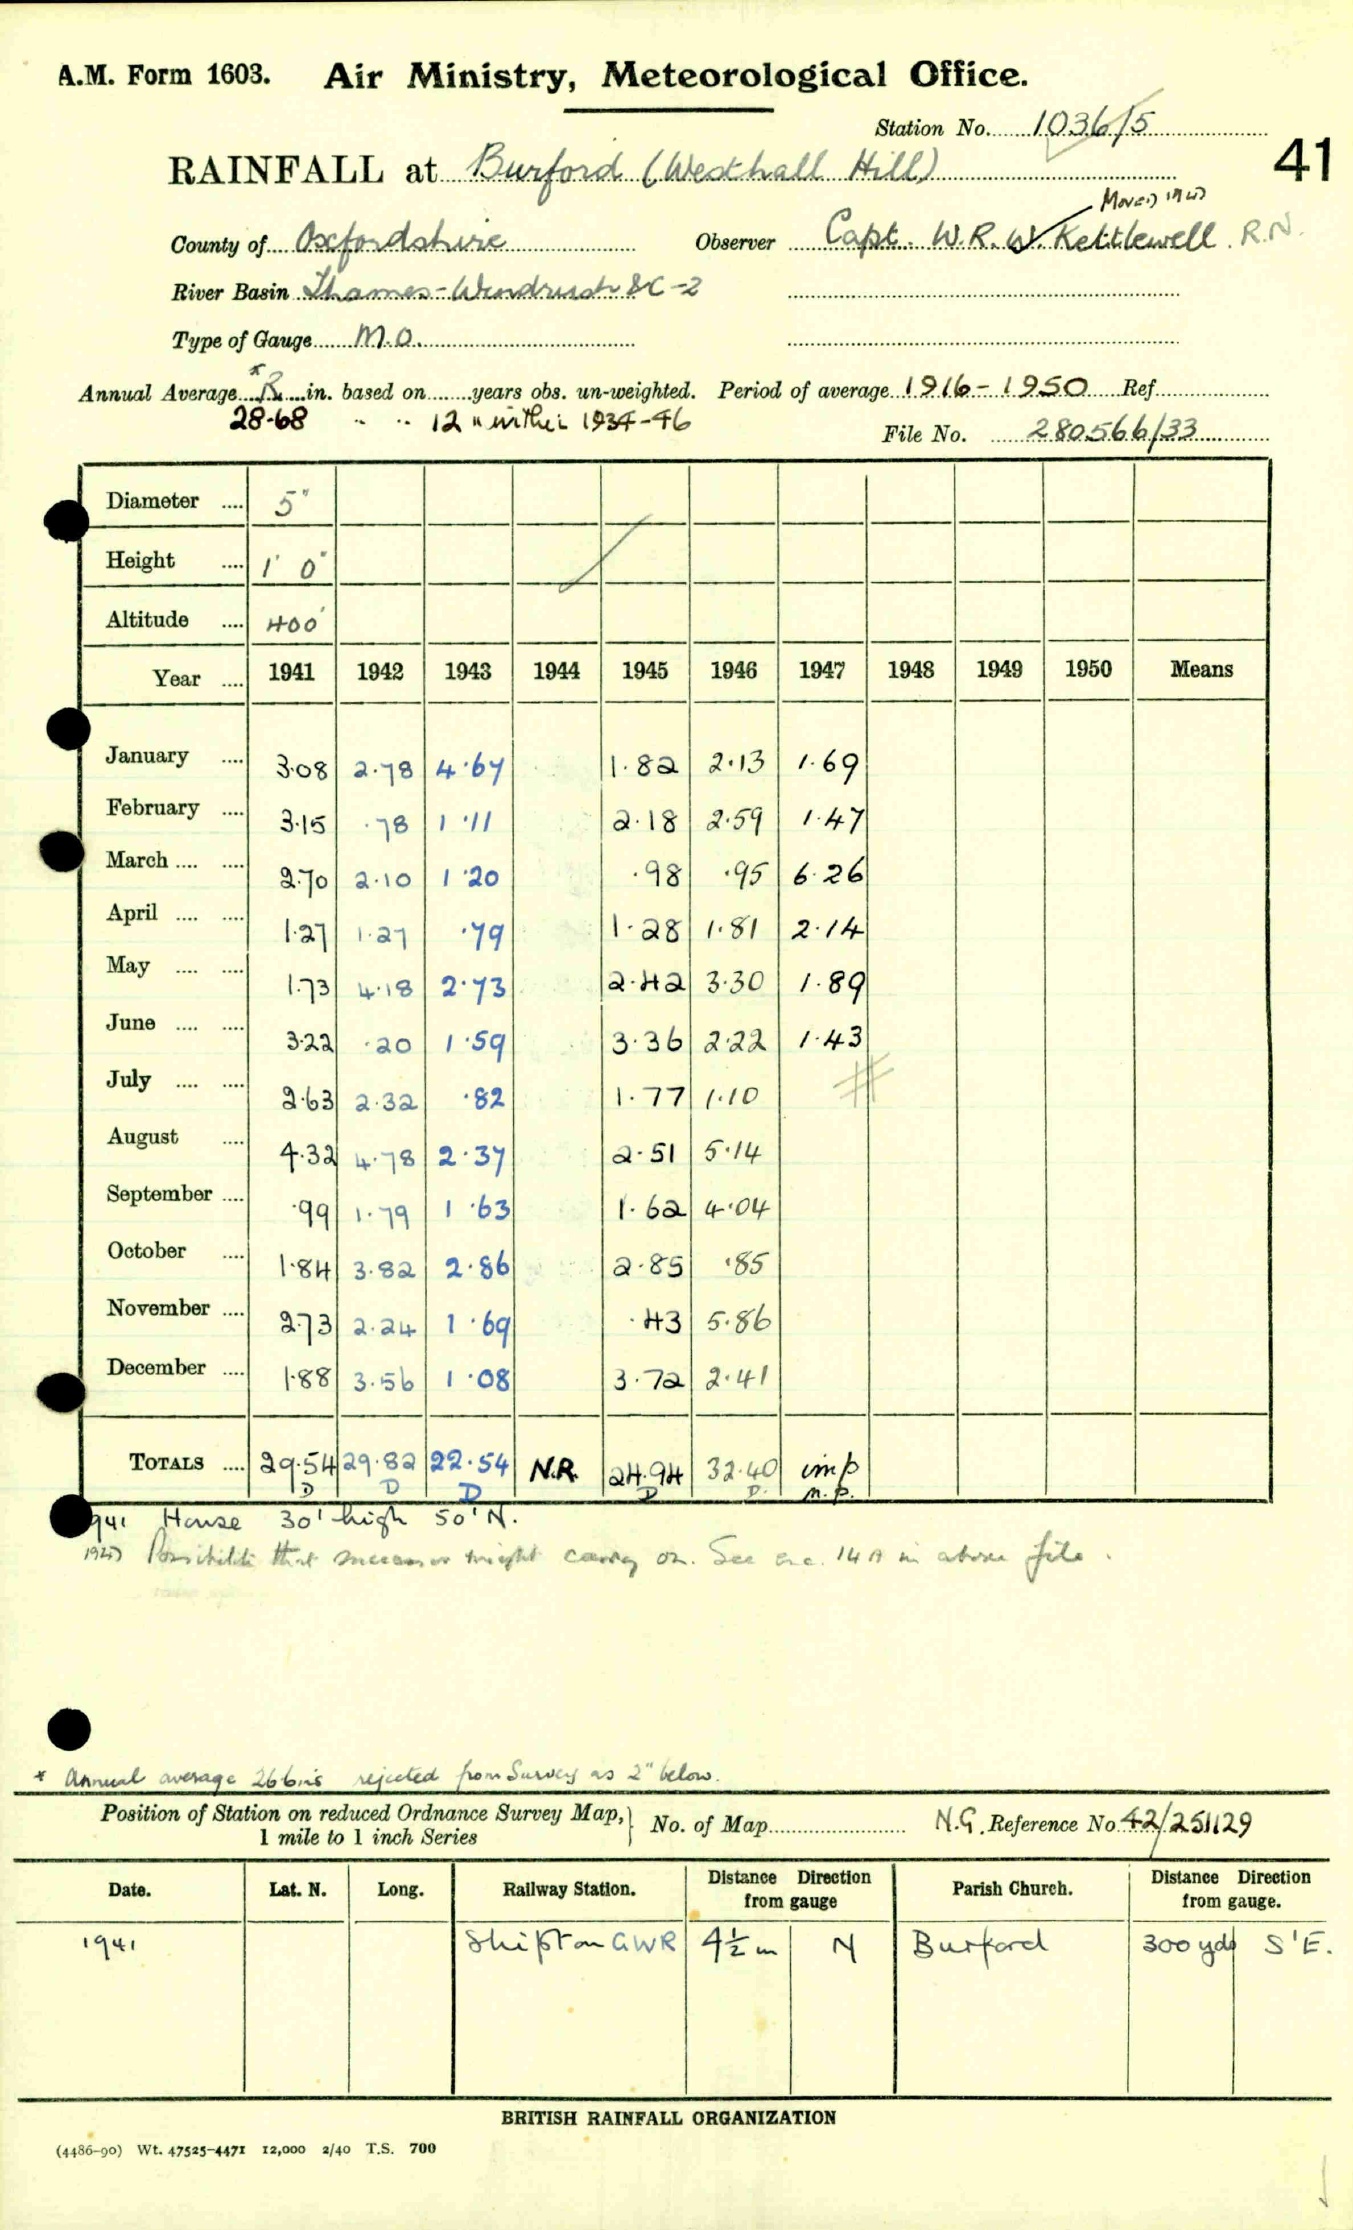 A.M. Form 1603. Air Ministry, Meteorological Office.
Station No. 1036/5
41
RAINFALL at Burford (Westhall Hill)
Moved 1947
County of Oxfordshire Observer Capt. W.R.W. Kettlewell R.N.
River Basin Thames-Windrush 8C-2
Type of Gauge M.O.
Annual Average * R in. based on years obs. un-weighted. Period of average 1916-1950 Ref.
28.68 " " 12 " within 1934-46
File No. 280566/33
Diameter .... 5"
Height .... 1' 0"
Altitude .... 400'
Year .... 1941 1942 1943 1944 1945 1946 1947 1948 1949 1950 Means
January .... 3.08 2.78 4.67 1.82 2.13 1.69
February .... 3.15 .78 1.11 2.18 2.59 1.47
March .... .... 2.70 2.10 1.20 .98 .95 6.26
April .... .... 1.27 1.27 .79 1.28 1.81 2.14
May .... .... 1.73 4.18 2.73 2.42 3.30 1.89
June .... .... 3.22 .20 1.59 3.36 2.22 1.43
July .... .... 2.63 2.32 .82 1.77 1.10
August .... 4.32 4.78 2.37 2.51 5.14
September .... .99 1.79 1.63 1.62 4.04
October .... 1.84 3.82 2.86 2.85 .85
November .... 2.73 2.24 1.69 .43 5.86
December .... 1.88 3.56 1.08 3.72 2.41
TOTALS .... 29.54 29.82 22.54 N.R. 24.94 32.40 imp
D D D D D. n.p.
1941 House 30' high 50' N.
1947 Possibility that successor might carry on. See enc. 14A in above file.
* Annual average 26.6ins rejected from Survey as 2" below.
Position of Station on reduced Ordnance Survey Map, 1 mile to 1 inch Series } No. of Map N.G. Reference No 42/251129
Date. Lat. N. Long. Railway Station. Distance Direction from gauge Parish Church. Distance Direction from gauge.
1941 Shipton GWR 4½ m N Burford 300 yds S'E.
BRITISH RAINFALL ORGANIZATION
(4486-90) Wt. 47525-4471 12,000 2/40 T.S. 700